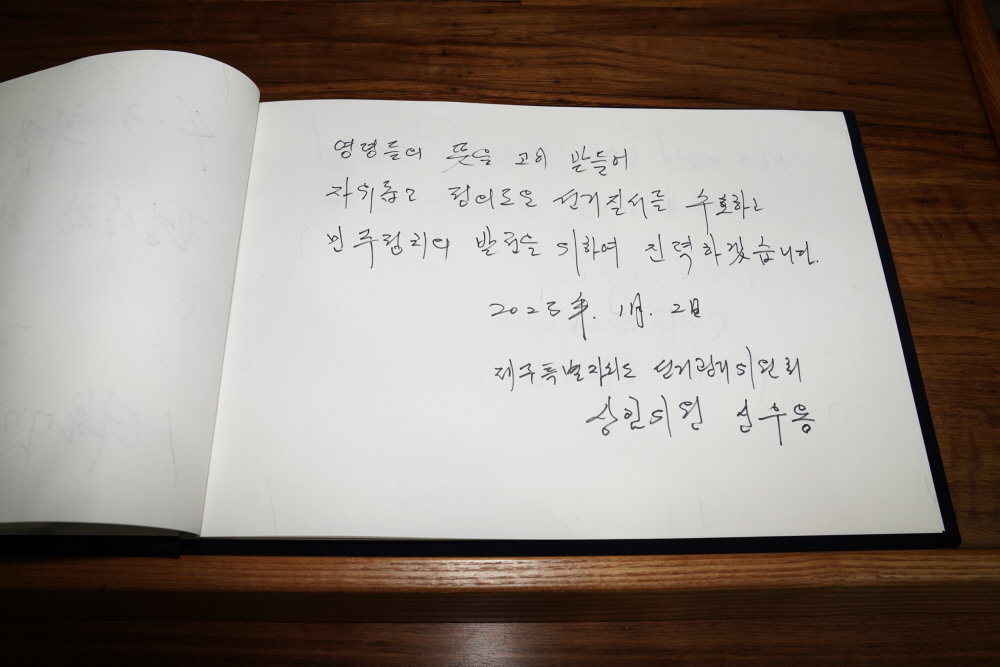 영령들의 뜻을 고이 받들어
자유롭고 정의로운 선거질서를 수호하고
민주정치의 발전을 위하여 진력하겠습니다.
2025年. 1月. 2日
제주특별자치도 선거관리위원회
상임위원 선우용